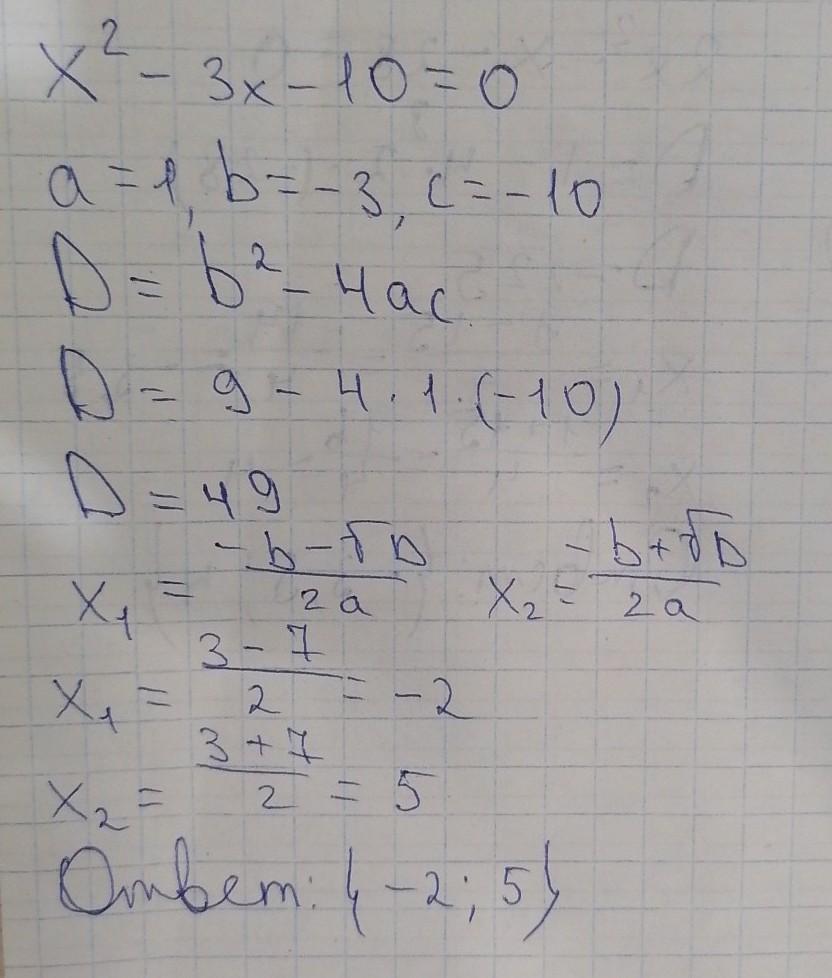 x² - 3x - 10 = 0
a = 1, b = -3, c = -10
D = b² - 4ac
D = 9 - 4 · 1 · (-10)
D = 49
x₁ = (-b - √D)/(2a)   x₂ = (-b + √D)/(2a)
x₁ = (3 - 7)/2 = -2
x₂ = (3 + 7)/2 = 5
Ответ: {-2; 5}